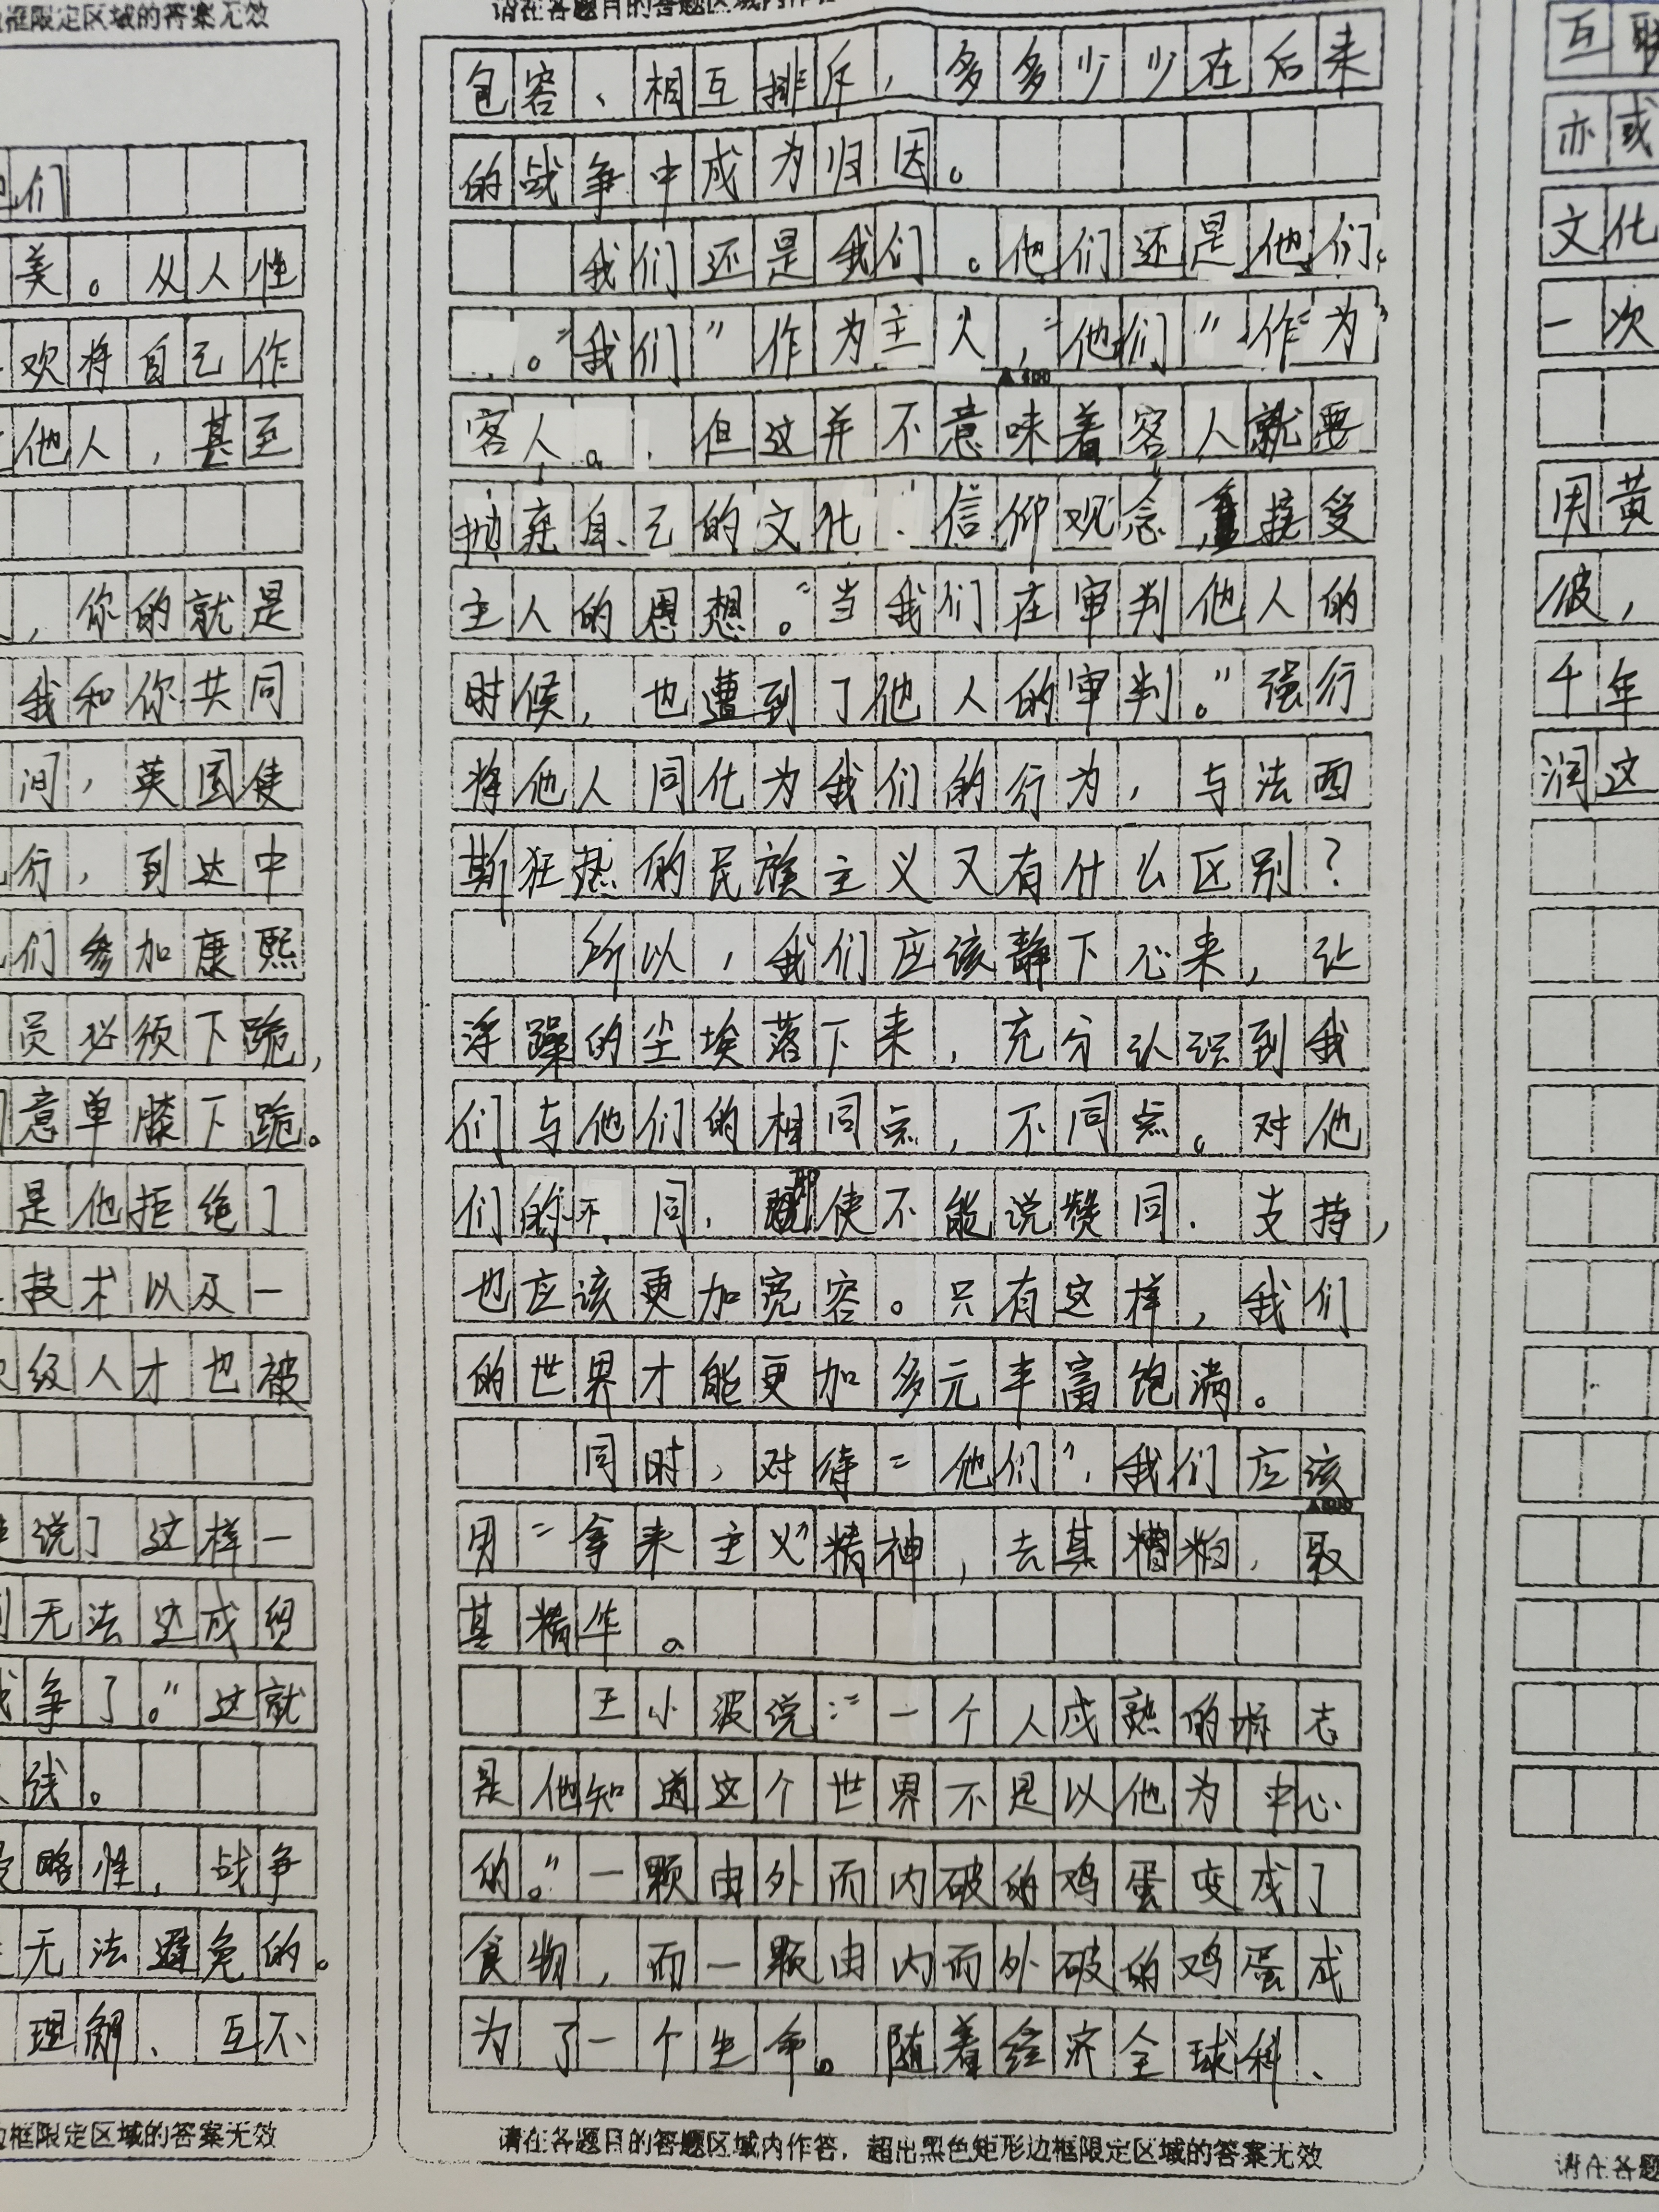 边框限定区域的答案无效
们
美。从人性
欢将自己作
他人，甚至
，你的就是
我和你共同
间，英国使
行，到达中
们参加康熙
员必须下跪，
意单膝下跪。
是他拒绝了
技术以及一
级人才也被
说了这样一
无法达成贸
争了。”这就
线。
略性，战争
无法避免的。
理解、互不
边框限定区域的答案无效
请在各题目的答题区域内作答
包容、相互排斥，多多少少在后来
的战争中成为归因。
我们还是我们。他们还是他们。
。“我们”作为主人，“他们”作为
客人。，但这并不意味着客人就要
抛弃自己的文化、信仰观念，接受
主人的思想。“当我们在审判他人的
时候，也遭到了他人的审判。”强行
将他人同化为我们的行为，与法西
斯狂热的民族主义又有什么区别？
所以，我们应该静下心来，让
浮躁的尘埃落下来，充分认识到我
们与他们的相同点，不同点。对他
们的不同，即使不能说赞同、支持，
也应该更加宽容。只有这样，我们
的世界才能更加多元丰富饱满。
同时，对待“他们”，我们应该
用“拿来主义”精神，去其糟粕，取
其精华。
王小波说：“一个人成熟的标志
是他知道这个世界不是以他为中心
的。”一颗由外而内破的鸡蛋变成了
食物，而一颗由内而外破的鸡蛋成
为了一个生命。随着经济全球科、
请在各题目的答题区域内作答，超出黑色矩形边框限定区域的答案无效
互联
亦或
文化
一次
用黄
彼，
千年
润这
请在各题